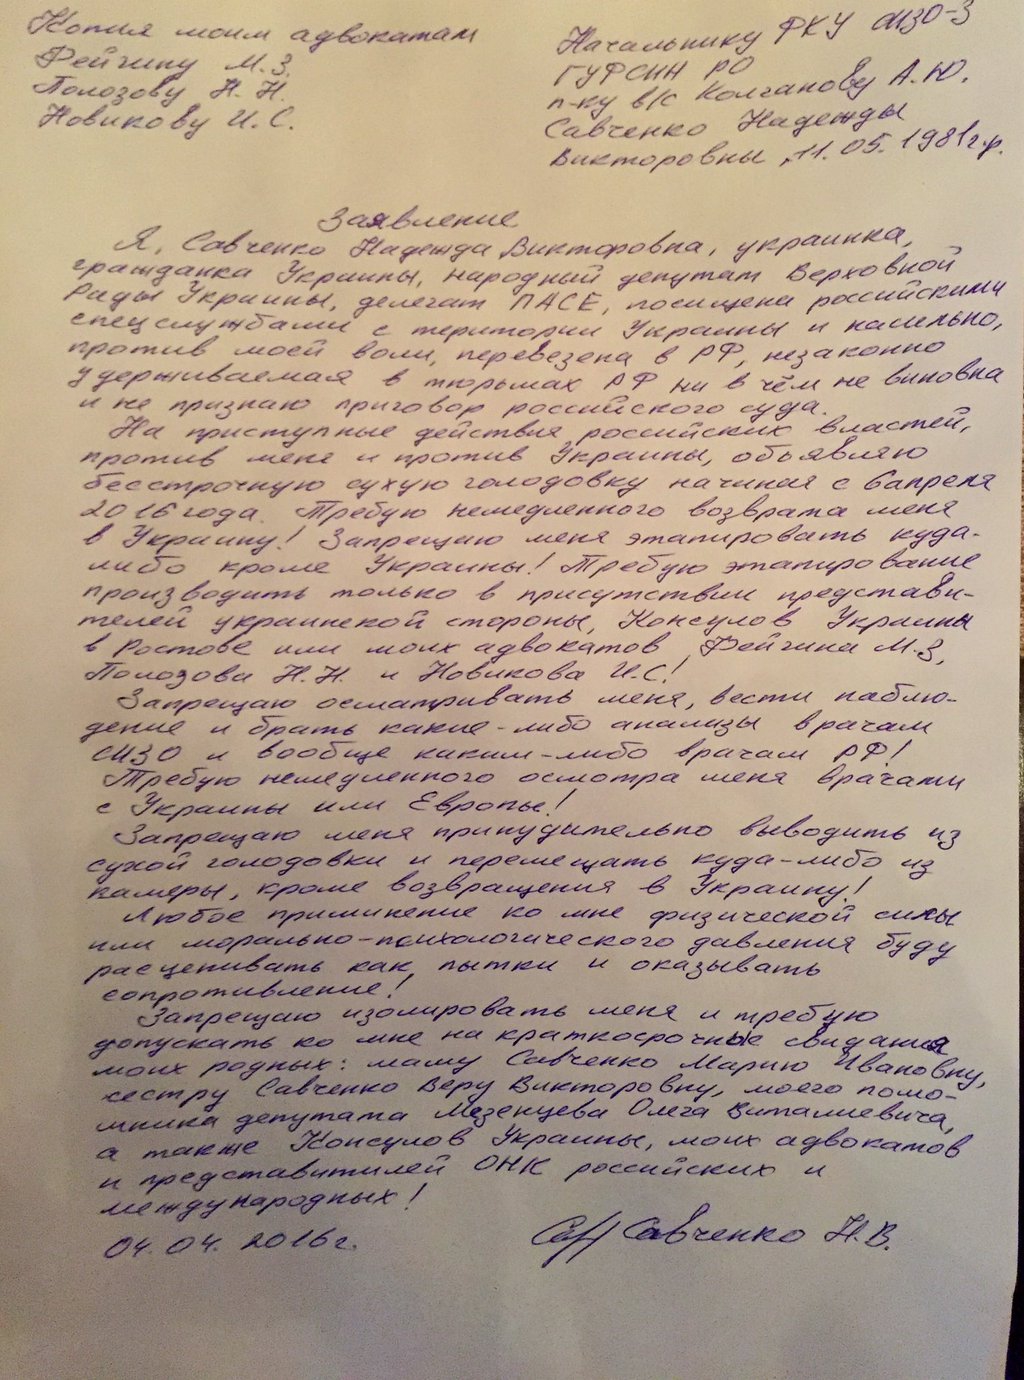 Копия моим адвокатам
Фейгину М.З.
Полозову Н.Н.
Новикову И.С.
Начальнику ФКУ СИЗО-3
ГУФСИН РО
п-ку в/с Колганову А.Ю.
Савченко Надежды
Викторовны, 11.05.1981г.р.
Заявление
Я, Савченко Надежда Викторовна, украинка,
гражданка Украины, народный депутат Верховной
Рады Украины, делегат ПАСЕ, похищена российскими
спецслужбами с територии Украины и насильно,
против моей воли, перевезена в РФ, незаконно
удерживаемая в тюрьмах РФ ни в чём не виновна
и не признаю приговор российского суда.
На приступные действия российских властей,
против меня и против Украины, объявляю
бесстрочную сухую голодовку начиная с 6апреля
2016 года. Требую немедленного возврата меня
в Украину! Запрещаю меня этапировать куда-
либо кроме Украины! Требую этапирование
производить только в присутствии представи-
телей украинской стороны, Консулов Украины
в Ростове или моих адвокатов Фейгина М.З.,
Полозова Н.Н. и Новикова И.С!
Запрещаю осматривать меня, вести наблю-
дение и брать какие-либо анализы врачам
СИЗО и вообще каким-либо врачам РФ!
Требую немедленного осмотра меня врачами
с Украины или Европы!
Запрещаю меня принудительно выводить из
сухой голодовки и перемещать куда-либо из
камеры, кроме возвращения в Украину!
Любое приминение ко мне физической силы
или морально-психологического давления буду
расценивать как пытки и оказывать
сопротивление!
Запрещаю изолировать меня и требую
допускать ко мне на краткосрочные свидания
моих родных: маму Савченко Марию Ивановну,
сестру Савченко Веру Викторовну, моего помо-
шника депутата Мезенцева Олега Виталиевича,
а также Консулов Украины, моих адвокатов
и представитилей ОНК российских и
международных!
04.04.2016г.
Савченко Н.В.